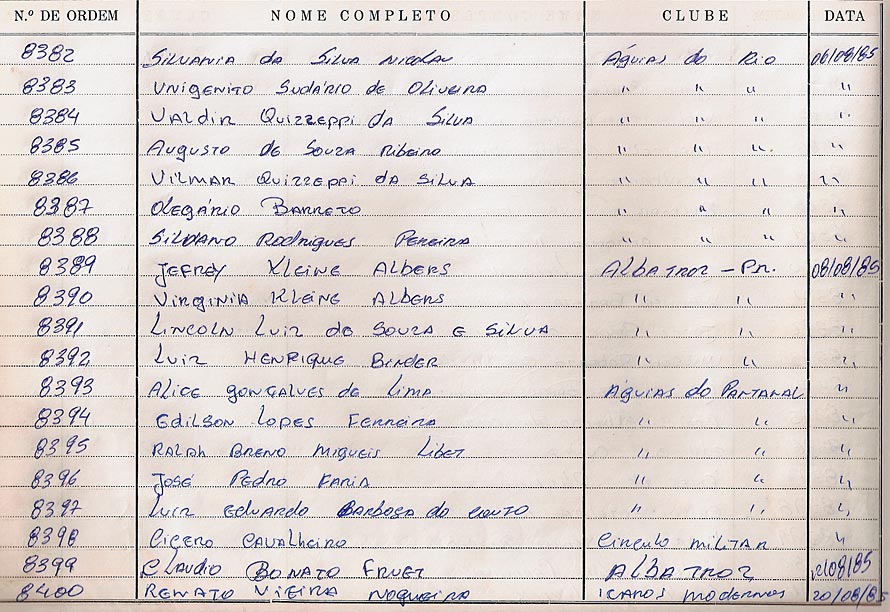 N.º DE ORDEM NOME COMPLETO CLUBE DATA
8382 Silvania da Silva Nicolau Águias do Rio 06/08/85
8383 Unigenito Sudário de Oliveira " " " "
8384 Valdir Quizzeppi da Silva " " " "
8385 Augusto de Souza Ribeiro " " " "
8386 Vilmar Quizzeppi da Silva " " " "
8387 Olegário Barreto " " " "
8388 Silvano Rodrigues Pereira " " " "
8389 Jefrey Kleine Albers Albatroz - Pr. 08/08/85
8390 Virginia Kleine Albers " " "
8391 Lincoln Luiz de Souza e Silva " " "
8392 Luiz Henrique Binder " " "
8393 Alice Gonçalves de Lima Águias do Pantanal "
8394 Edilson Lopes Ferreira " " "
8395 Ralph Breno Migueis Libet " " "
8396 José Pedro Faria " " "
8397 Luiz Eduardo Barbosa do Couto " " "
8398 Cicero Cavalheiro Circulo Militar "
8399 Claudio Bonato Fruet Albatroz 12/08/85
8400 Renato Vieira Nogueira Icaros Modernos 20/08/85